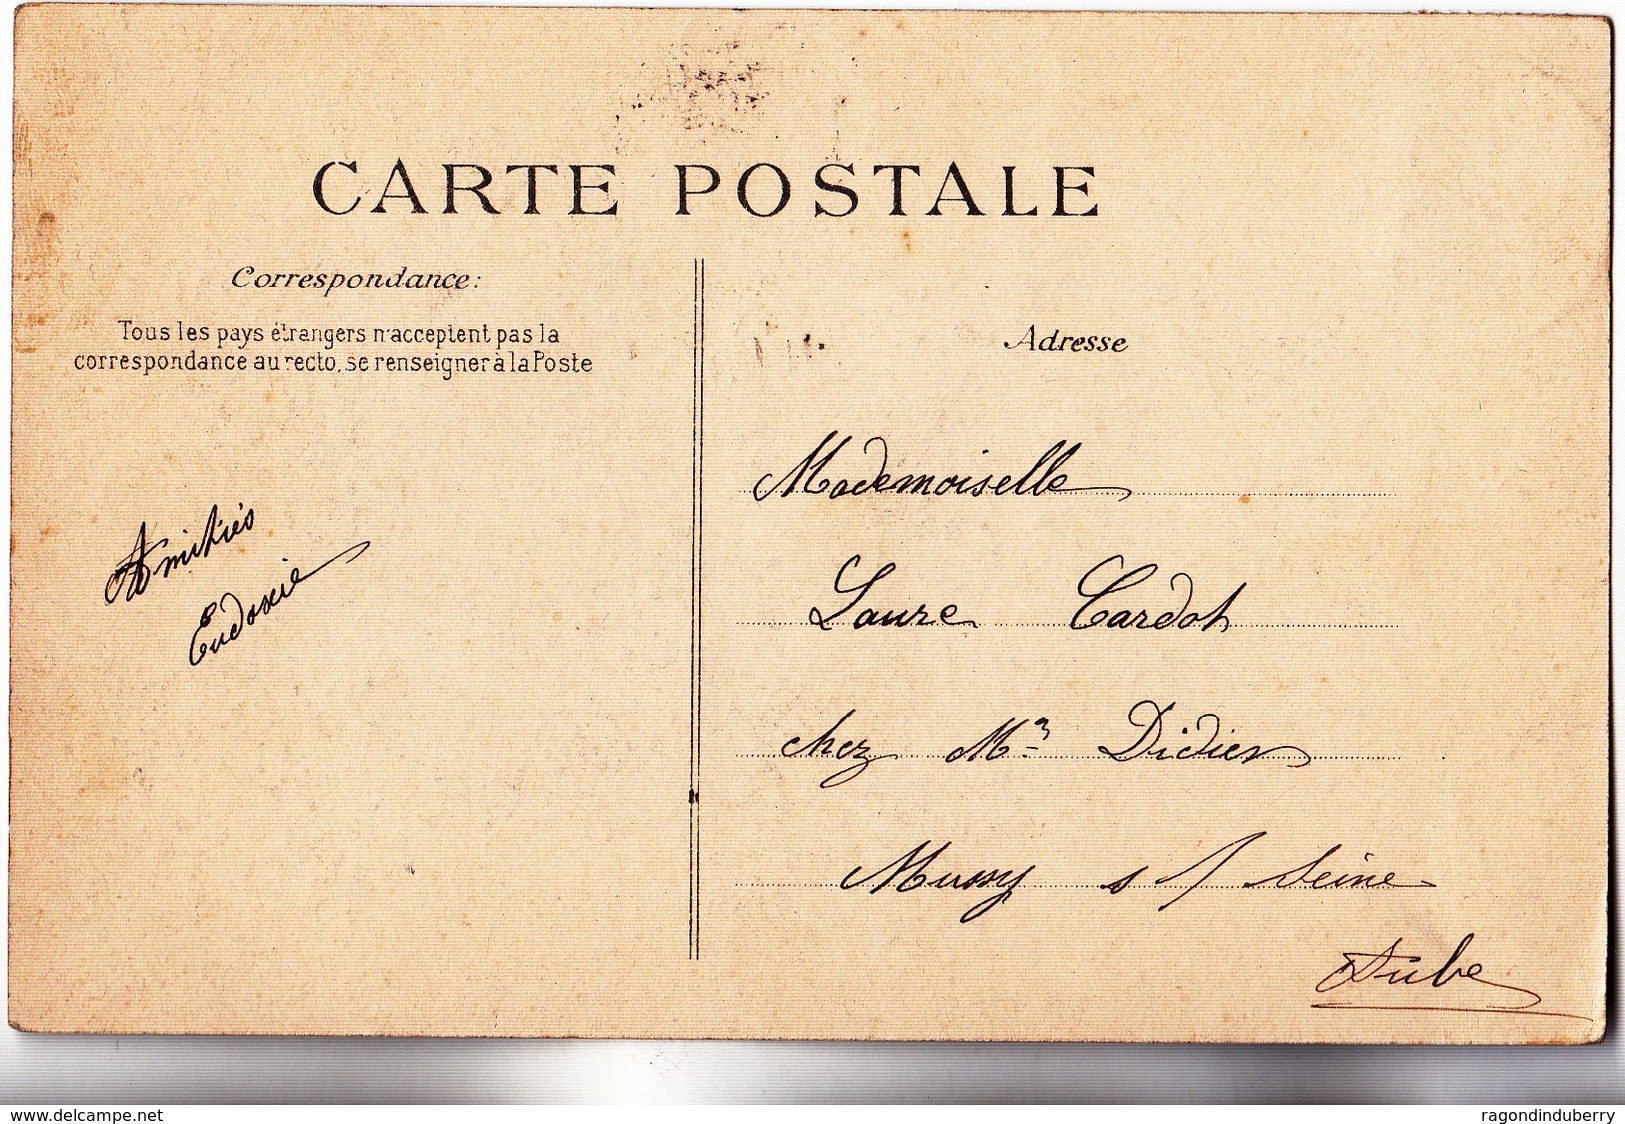 CARTE POSTALE
Correspondance:
Tous les pays étrangers n'acceptent pas la
correspondance au recto, se renseigner à la Poste
Amitiés
Eudoxie
Adresse
Mademoiselle
Laure Cardot
chez Mr Didier
Mussy s/ Seine
Aube
www.delcampe.net
ragondinduberry